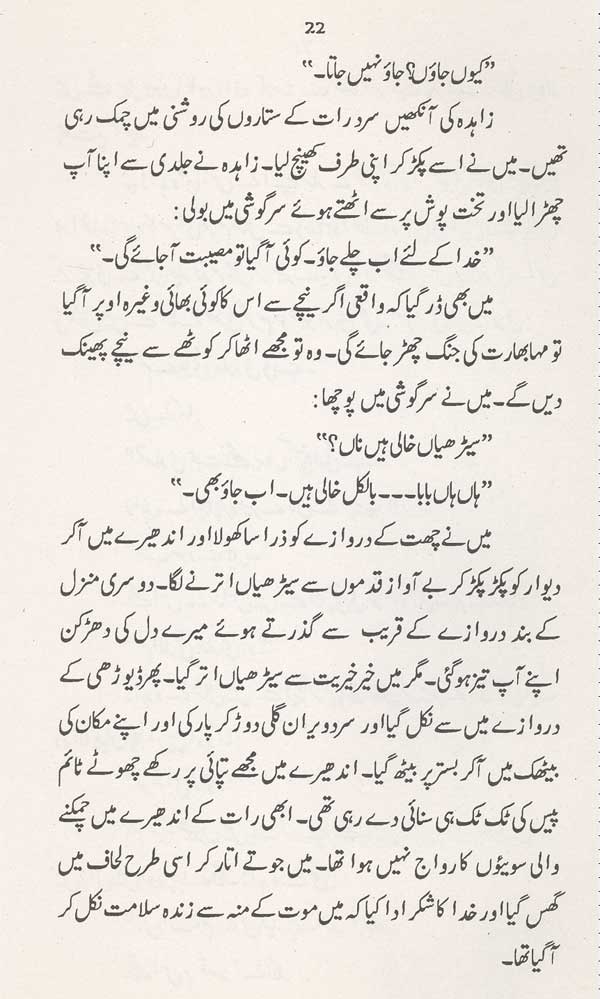 22
”کیوں جاؤں؟ جاؤ نہیں جاتا۔“
زاہدہ کی آنکھیں سرد رات کے ستاروں کی روشنی میں چمک رہی
تھیں۔ میں نے اسے پکڑ کر اپنی طرف کھینچ لیا۔ زاہدہ نے جلدی سے اپنا آپ
چھڑا لیا اور تخت پوش پر سے اٹھتے ہوئے سرگوشی میں بولی:
”خدا کے لئے اب چلے جاؤ۔ کوئی آ گیا تو مصیبت آ جائے گی۔“
میں بھی ڈر گیا کہ واقعی اگر نیچے سے اس کا کوئی بھائی وغیرہ اوپر آ گیا
تو مہا بھارت کی جنگ چھڑ جائے گی۔ وہ تو مجھے اٹھا کر کوٹھے سے نیچے پھینک
دیں گے۔ میں نے سرگوشی میں پوچھا:
”سیڑھیاں خالی ہیں ناں؟“
”ہاں ہاں بابا۔۔۔ بالکل خالی ہیں۔ اب جاؤ بھی۔“
میں نے چھت کے دروازے کو ذرا سا کھولا اور اندھیرے میں آ کر
دیوار کو پکڑ پکڑ کر بے آواز قدموں سے سیڑھیاں اترنے لگا۔ دوسری منزل
کے بند دروازے کے قریب سے گذرتے ہوئے میرے دل کی دھڑکن
اپنے آپ تیز ہو گئی۔ مگر میں خیر خیریت سے سیڑھیاں اتر گیا۔ پھر ڈیوڑھی کے
دروازے میں سے نکل گیا اور سرد ویران گلی دوڑ کر پار کی اور اپنے مکان کی
بیٹھک میں آ کر بستر پر بیٹھ گیا۔ اندھیرے میں مجھے تپائی پر رکھے چھوٹے ٹائم
پیس کی ٹک ٹک ہی سنائی دے رہی تھی۔ ابھی رات کے اندھیرے میں چمکنے
والی سوئیوں کا رواج نہیں ہوا تھا۔ میں جوتے اتار کر اسی طرح لحاف میں
گھس گیا اور خدا کا شکر ادا کیا کہ میں موت کے منہ سے زندہ سلامت نکل کر
آ گیا تھا۔